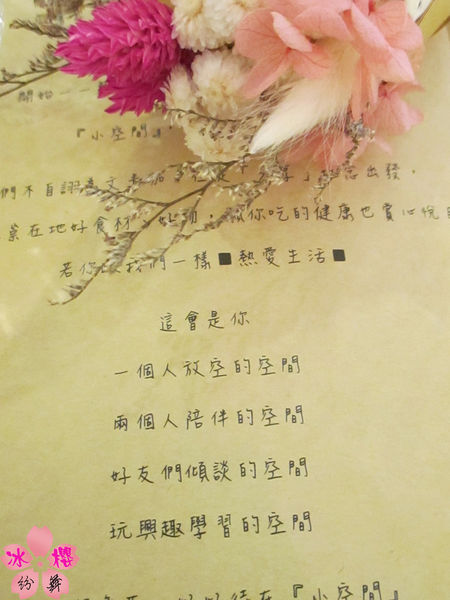 開始
『小空間』
們不自詡為文
出發，
業在地好食材
你吃的健康也賞心悅
若你 我們一樣■熱愛生活■
這會是你
一個人放空的空間
兩個人陪伴的空間
好友們傾談的空間
玩興趣學習的空間
在『小空間』
冰櫻
紛舞